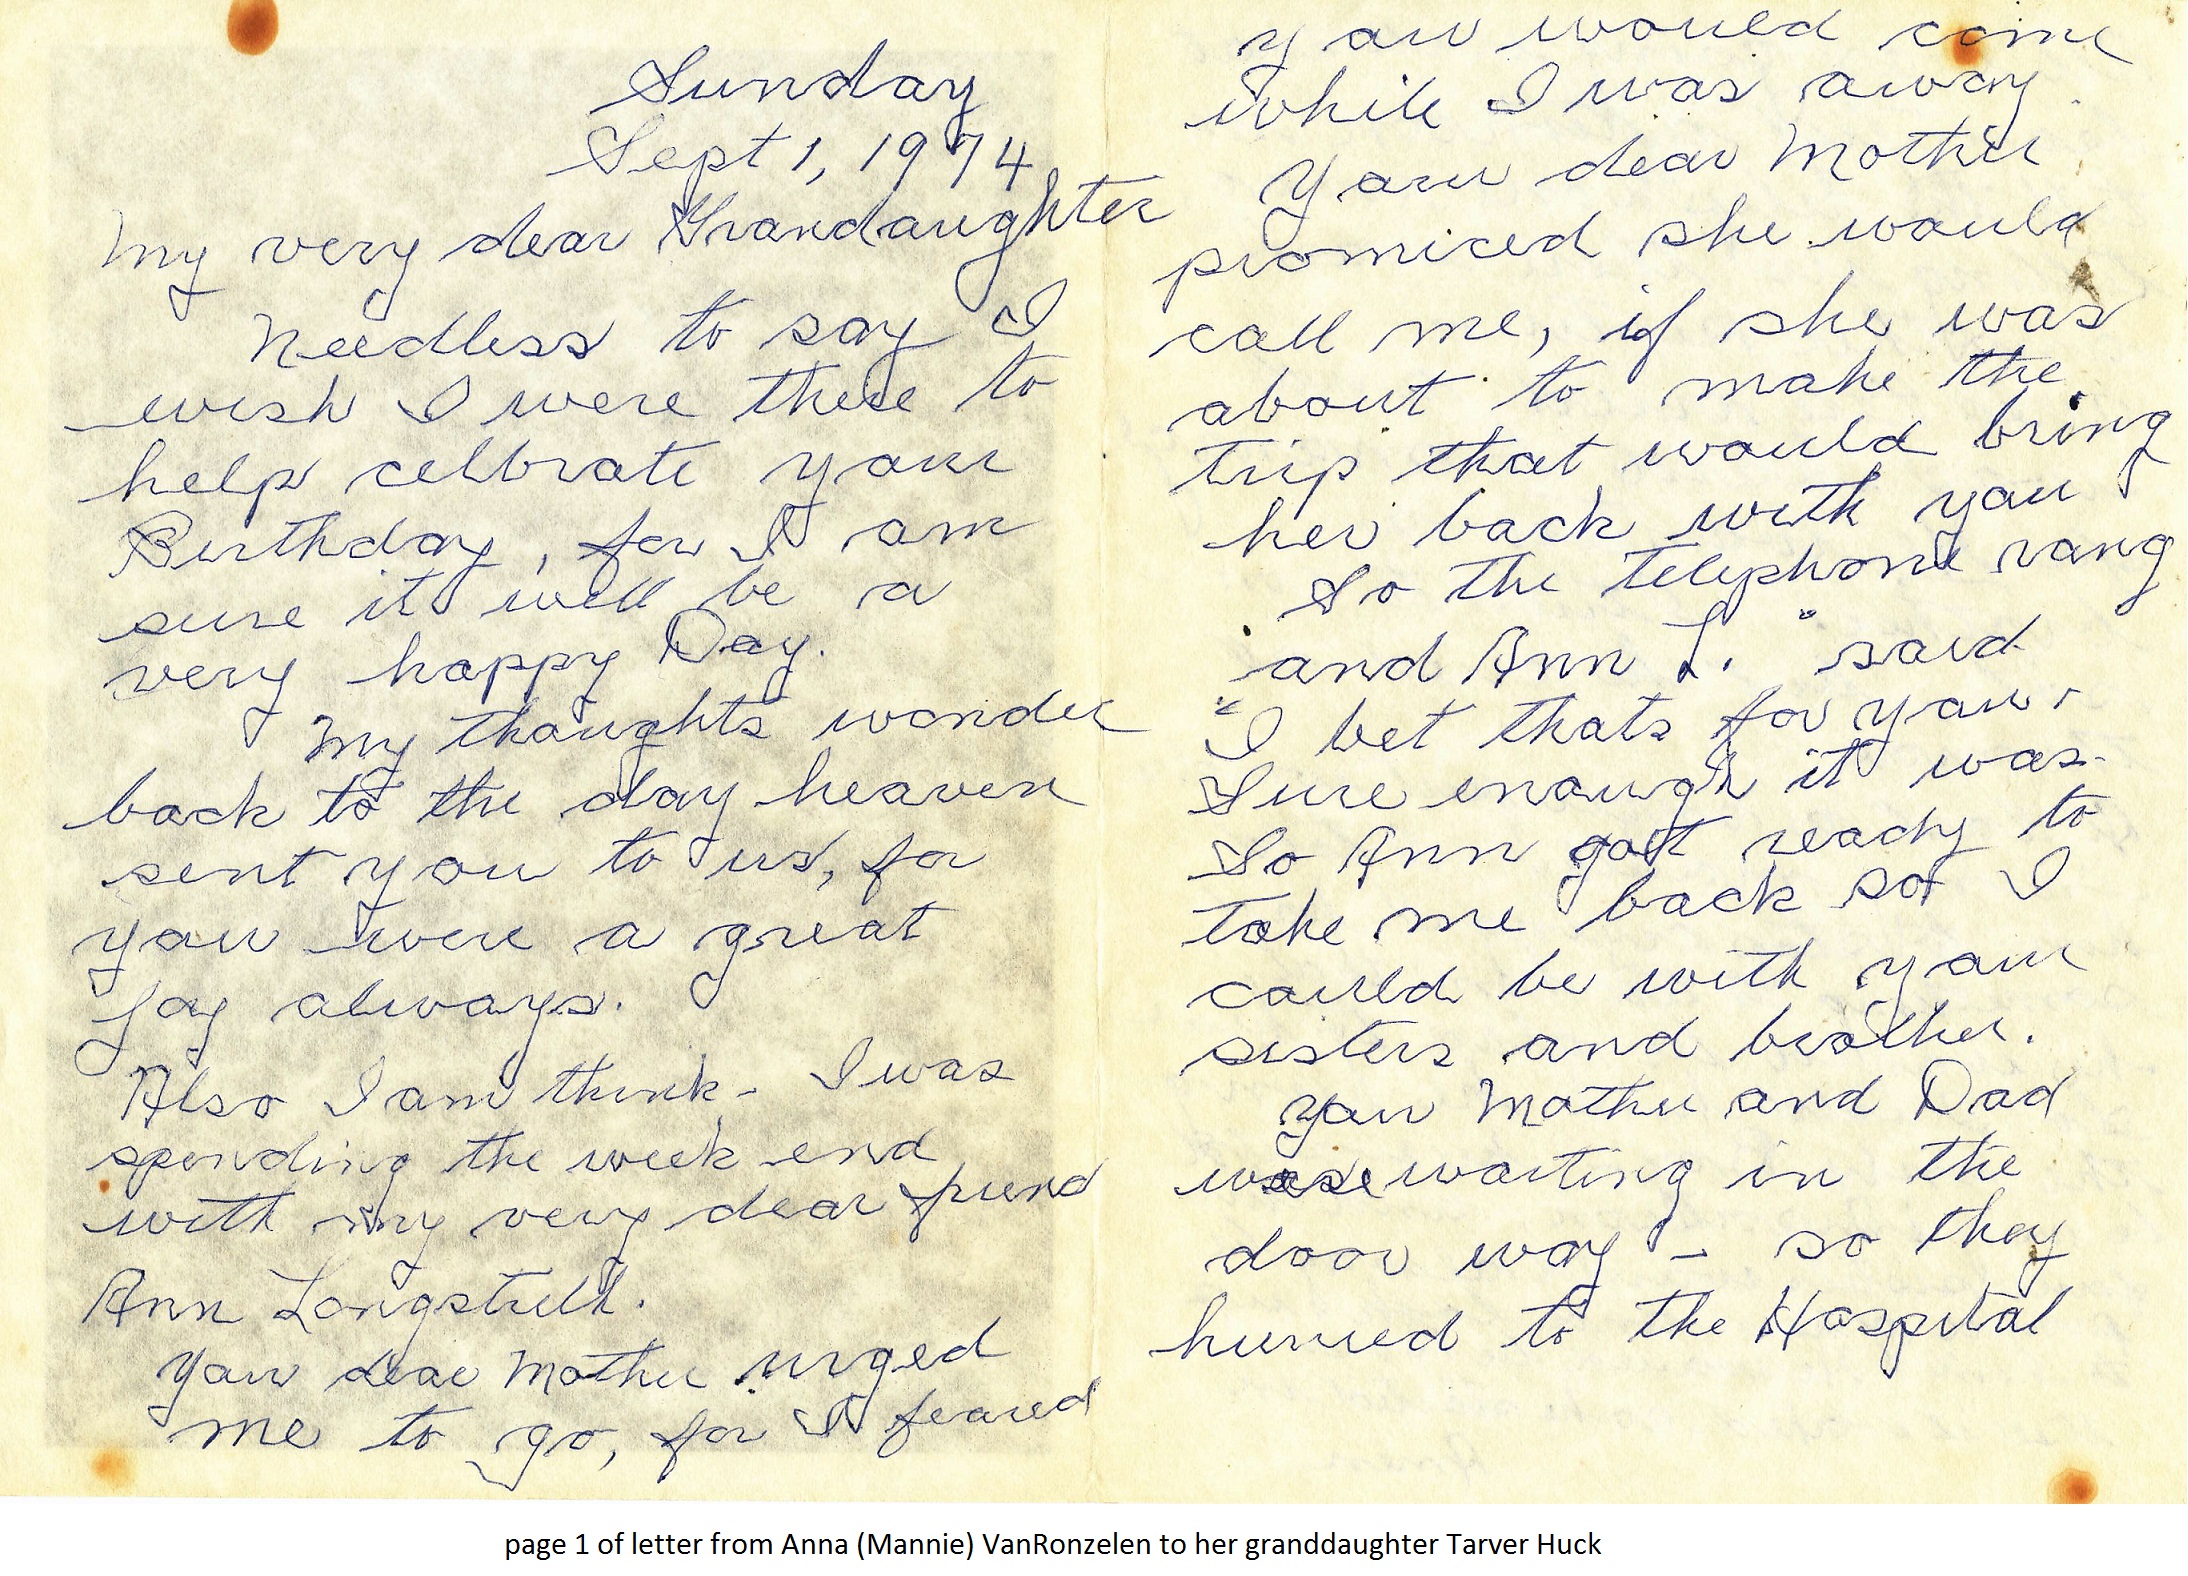 Sunday
Sept 1, 1974
My very dear Grandaughter
Needless to say I
wish I were there to
help celbrate your
Birthday, for I am
sure it will be a
very happy Day.
My thoughts wander
back to the day heaven
sent you to us, for
you were a great
Joy always.
Also I am think - I was
spending the week end
with my very dear friend
Ann Longstreth.
Your dear Mother urged
me to go, for I feared
you would come
while I was away.
Your dear Mother
promiced she would
call me, if she was
about to make the
trip that would bring
her back with you
So the telephone rang
and Ann L. " said
"I bet thats for you,
Sure enough it was.
So Ann got ready to
take me back so I
could be with your
sisters and brother.
Your Mother and Dad
were waiting in the
door way - so they
hurried to the Hospital
page 1 of letter from Anna (Mannie) VanRonzelen to her granddaughter Tarver Huck